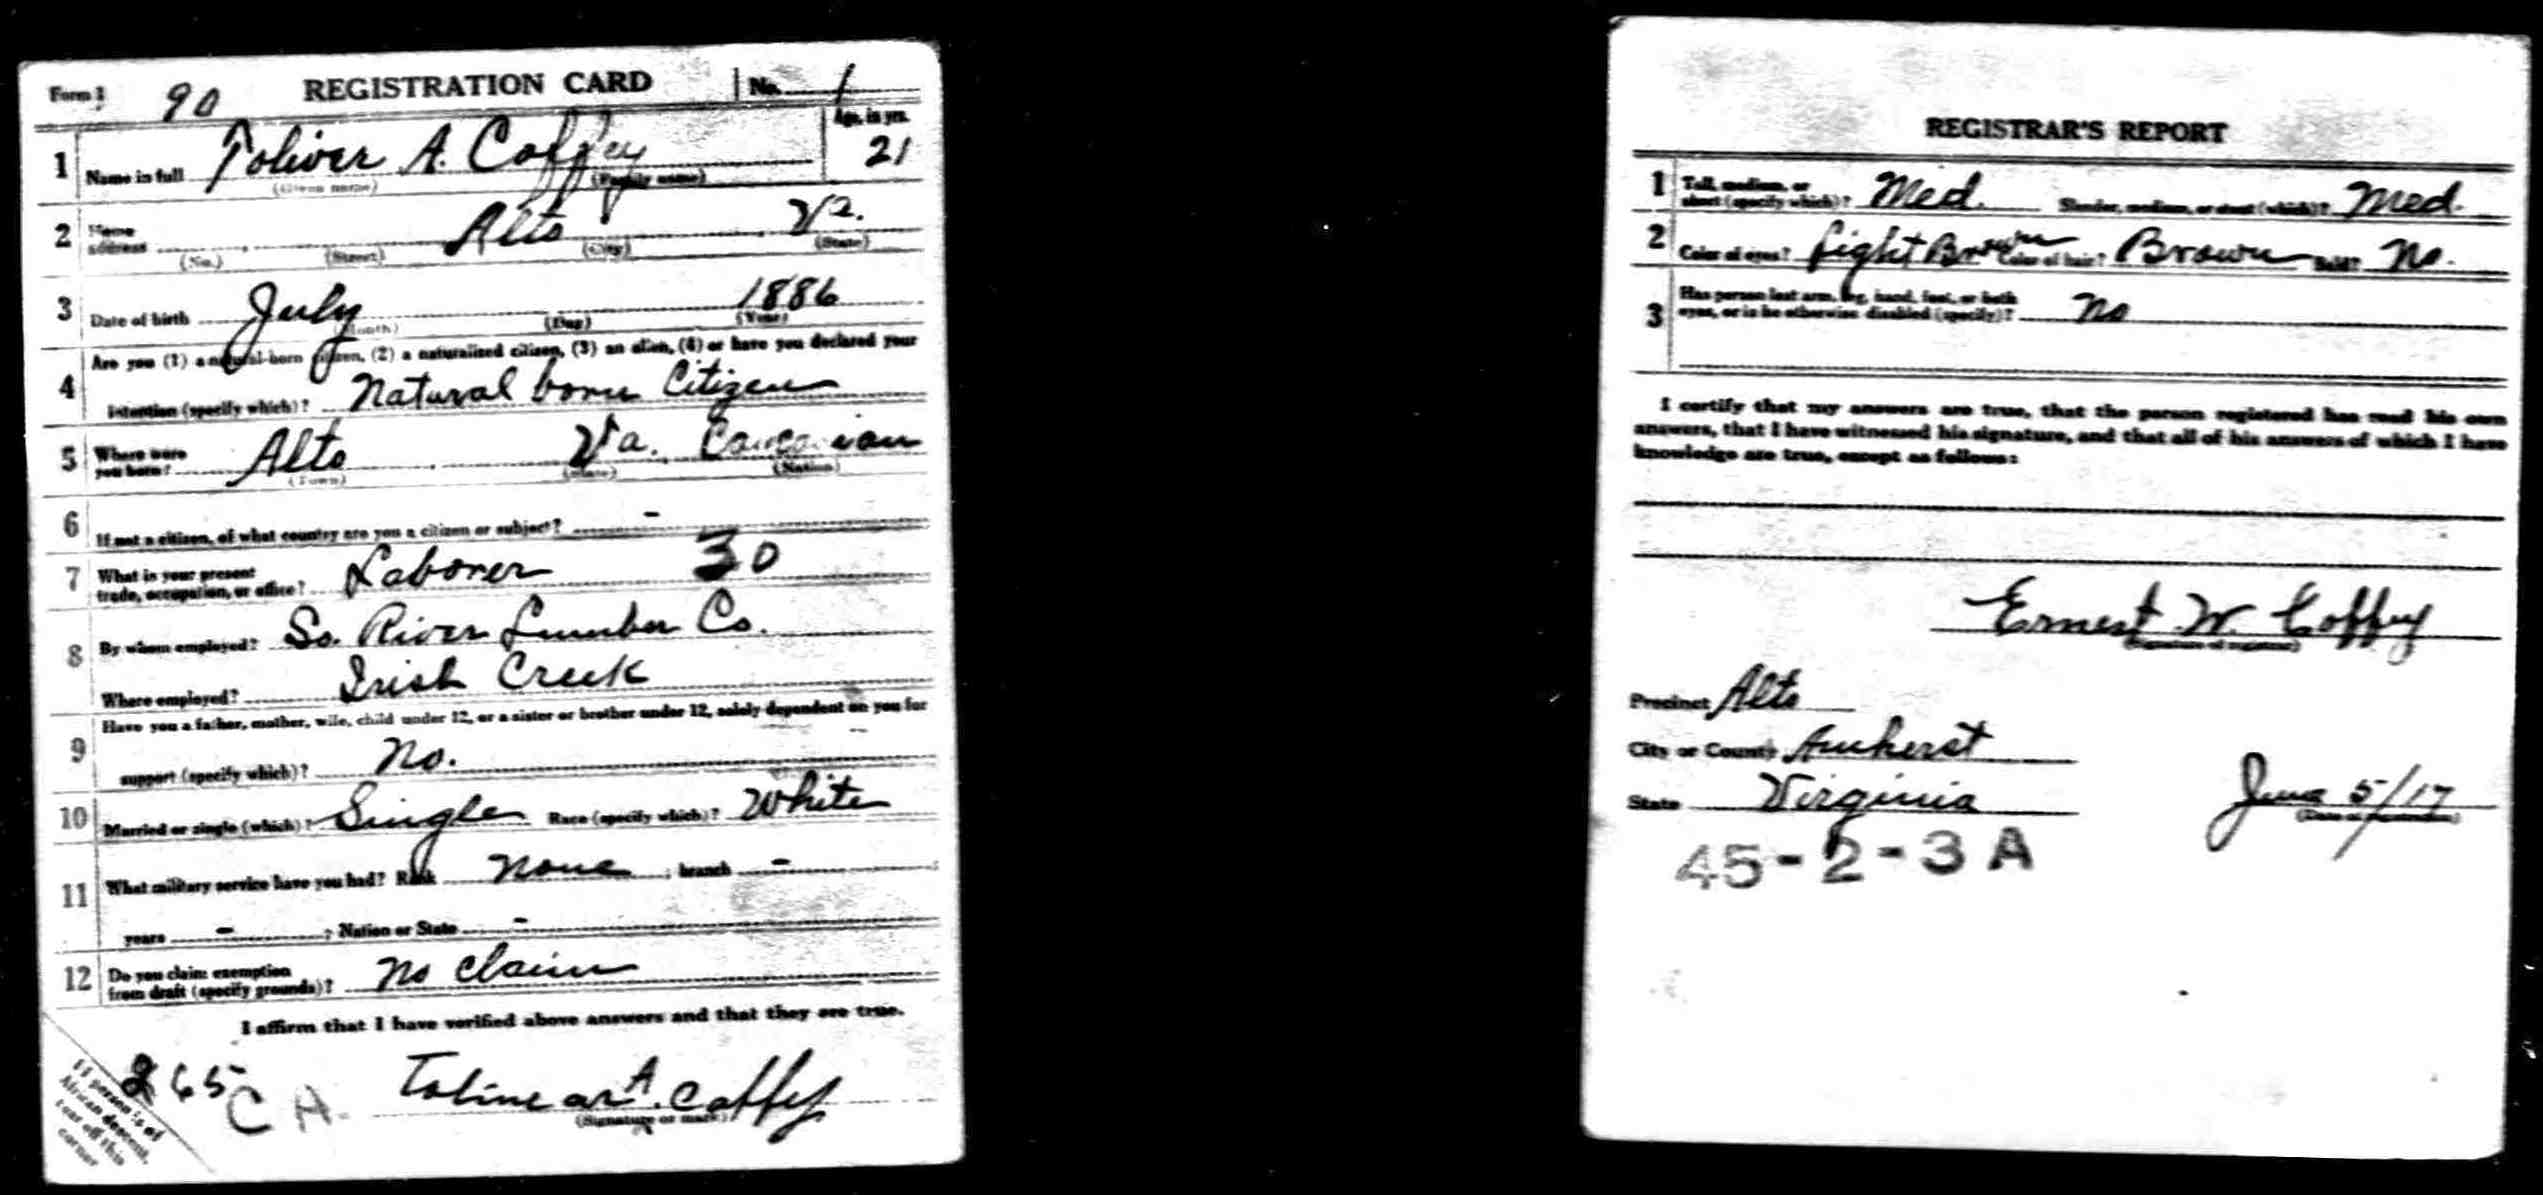 Form 1 90 REGISTRATION CARD No. 1
Age, in yrs.
1 Name in full Toliver A. Coffey 21
(Given name) (Family name)
2 Home address Alto Va.
(No.) (Street) (City) (State)
3 Date of birth July 1886
(Month) (Day) (Year)
Are you (1) a natural-born citizen, (2) a naturalized citizen, (3) an alien, (4) or have you declared your
4 intention (specify which)? Natural born Citizen
5 Where were you born? Alto Va. Caucasian
(Town) (State) (Nation)
6 If not a citizen, of what country are you a citizen or subject? -
7 What is your present trade, occupation, or office? Laborer 30
8 By whom employed? So. River Lumber Co.
Where employed? Irish Creek
Have you a father, mother, wife, child under 12, or a sister or brother under 12, solely dependent on you for
9 support (specify which)? No.
10 Married or single (which)? Single Race (specify which)? White
11 What military service have you had? Rank none ; branch -
years - ; Nation or State -
12 Do you claim exemption from draft (specify grounds)? No claim
I affirm that I have verified above answers and that they are true.
265 C A. Tolinear A. Coffey
(Signature or mark)
If person is of
African descent,
tear off this
corner
REGISTRAR'S REPORT
1 Tall, medium, or short (specify which)? Med. Slender, medium, or stout (which)? Med.
2 Color of eyes? Light Brown Color of hair? Brown Bald? No.
3 Has person lost arm, leg, hand, foot, or both
eyes, or is he otherwise disabled (specify)? No
I certify that my answers are true, that the person registered has read his own
answers, that I have witnessed his signature, and that all of his answers of which I have
knowledge are true, except as follows:
Ernest W. Coffey
(Signature of registrar)
Precinct Alto
City or County Amherst
State Virginia June 5/17
(Date of registration)
45-2-3 A